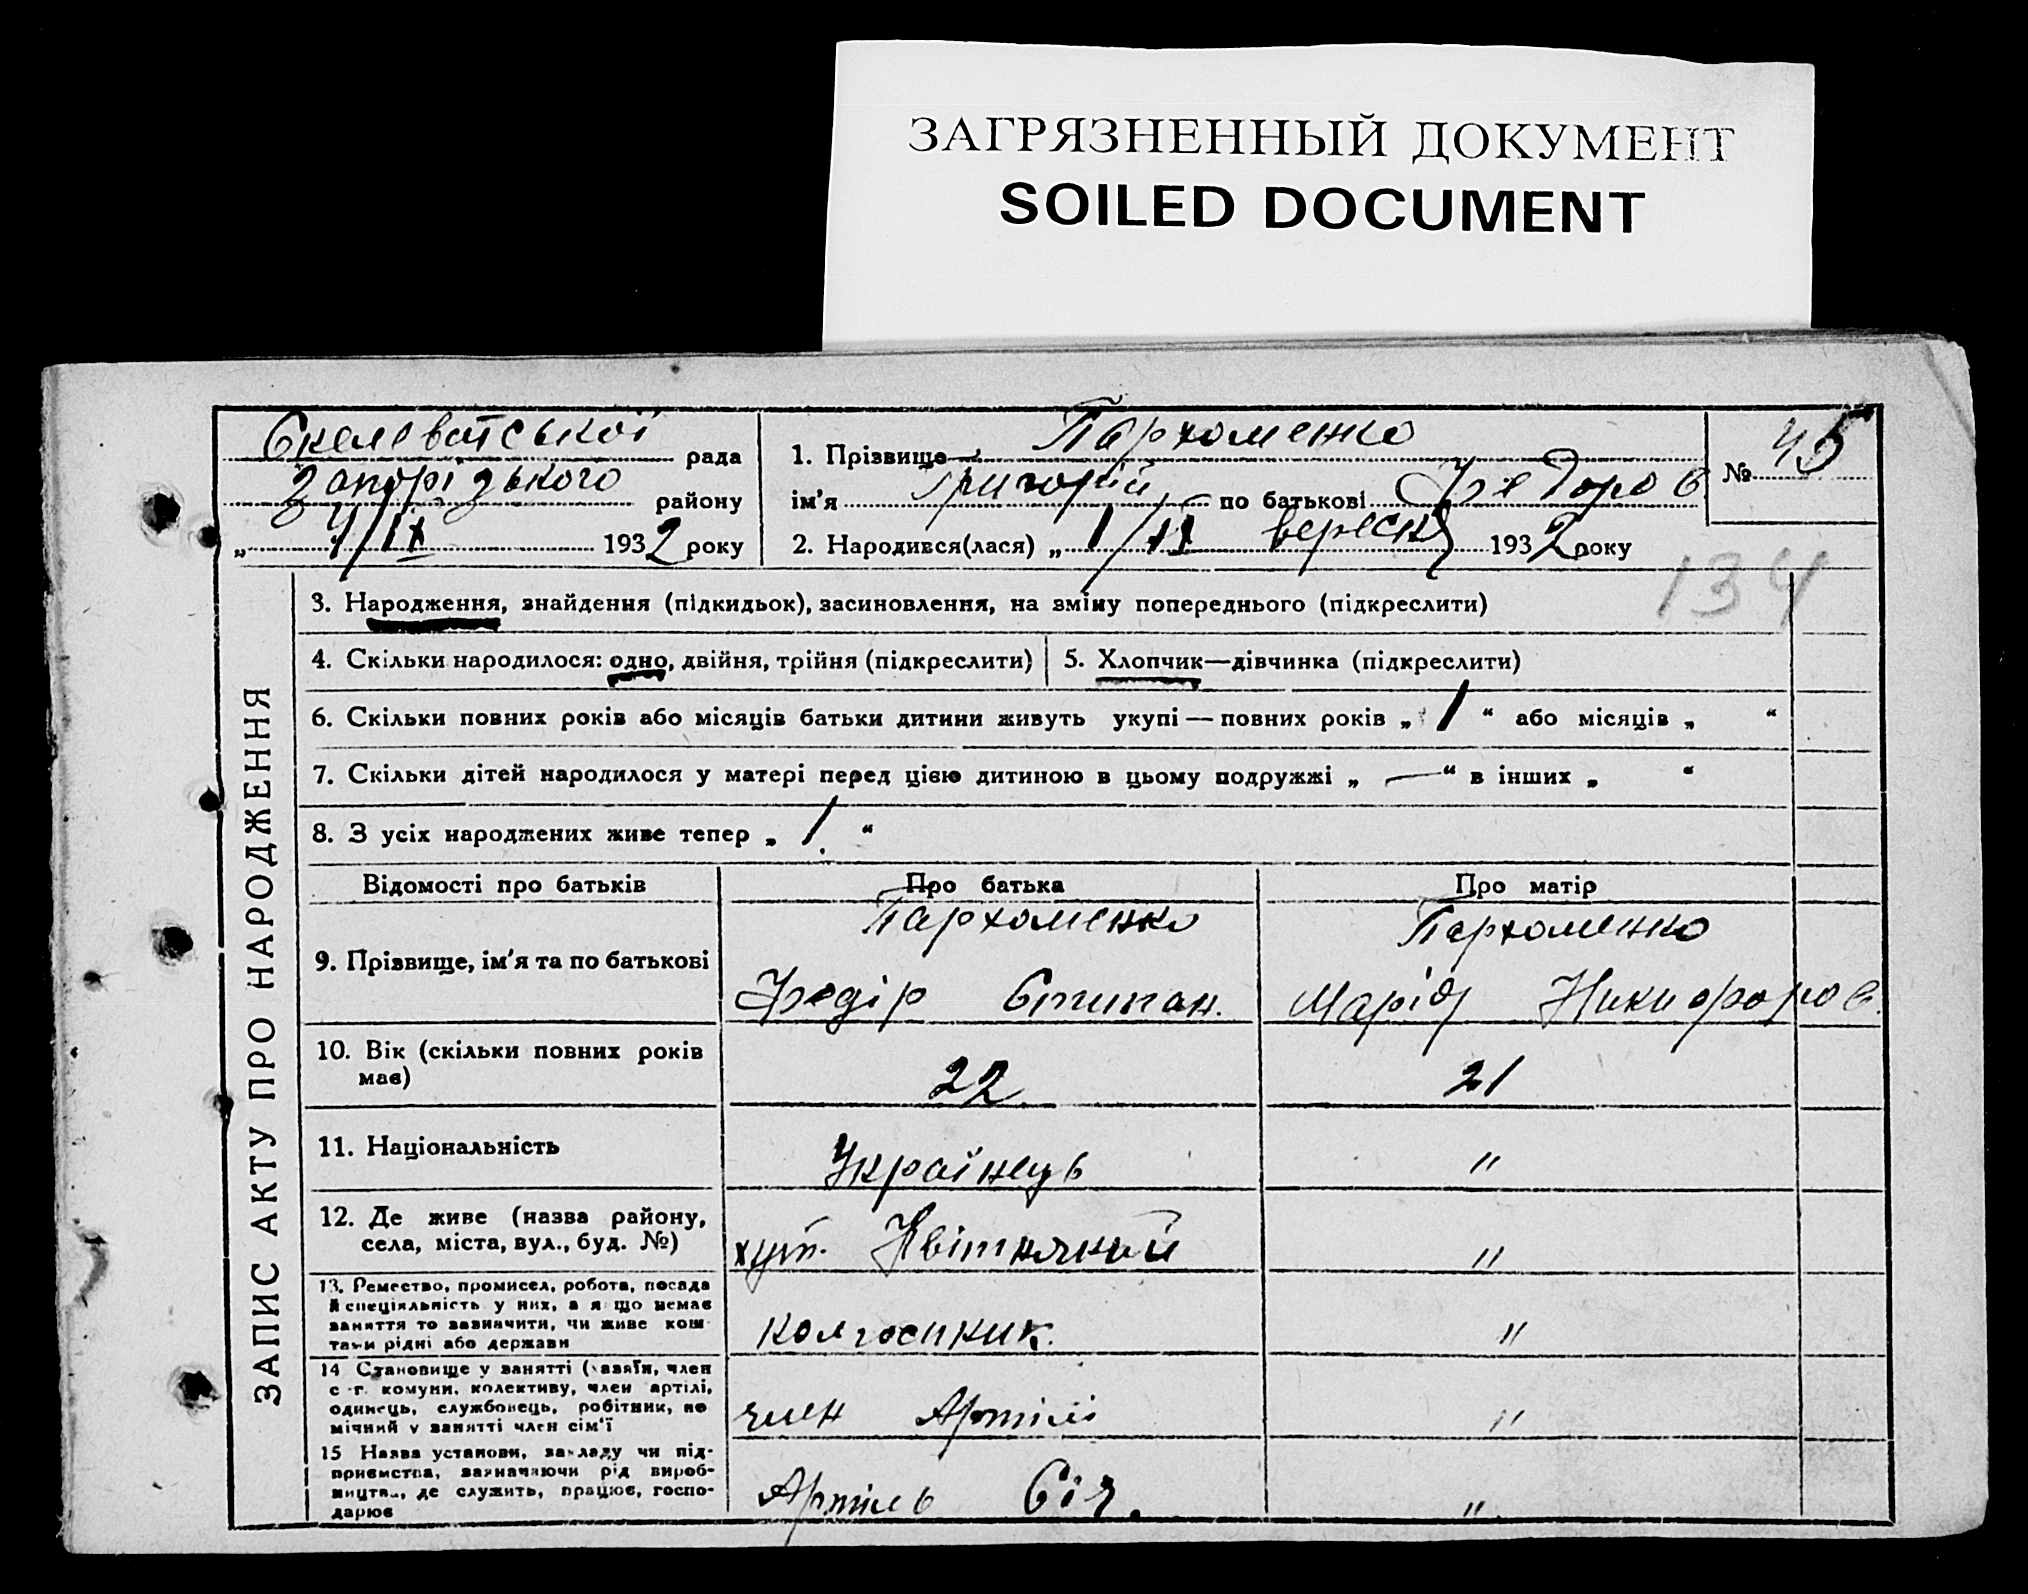 ЗАГРЯЗНЕННЫЙ ДОКУМЕНТ
SOILED DOCUMENT
Скелеватської рада
Запорізького району
„ 4/IX 1932 року
1. Прізвище Пархоменко
ім'я Григорій по батькові Федоров
2. Народився(лася) „ 1/IX вересня 1932 року
№ 45
134
3. Народження, знайдення (підкидьок), засиновлення, на зміну попереднього (підкреслити)
4. Скільки народилося: одно, двійня, трійня (підкреслити)
5. Хлопчик—дівчинка (підкреслити)
6. Скільки повних років або місяців батьки дитини живуть укупі — повних років „ 1 “ або місяців „ “
7. Скільки дітей народилося у матері перед цією дитиною в цьому подружжі „ — “ в інших „ “
8. З усіх народжених живе тепер „ 1 “
ЗАПИС АКТУ ПРО НАРОДЖЕННЯ
Відомості про батьків
Про батька
Про матір
9. Прізвище, ім'я та по батькові
Пархоменко
Федір Степан.
Пархоменко
Марія Никифоров.
10. Вік (скільки повних років
має)
22
21
11. Національність
Українець
"
12. Де живе (назва району,
села, міста, вул., буд. №)
хут.
"
13. Ремество, промисел, робота, посада
й спеціяльність у них, а якщо немає
заняття то зазначити, чи живе кош-
тами рідні або держави
колгоспник.
"
14 Становище у занятті (хазяїн, член
с.-г. комуни, колективу, член артілі,
одинець, службовець, робітник, по-
мічний у занятті член сім'ї
член Артілі
"
15 Назва установи, закладу чи під-
приємства, зазначаючи рід вироб-
ництва, де служить, працює, госпо-
дарює
Артіль Січ.
"